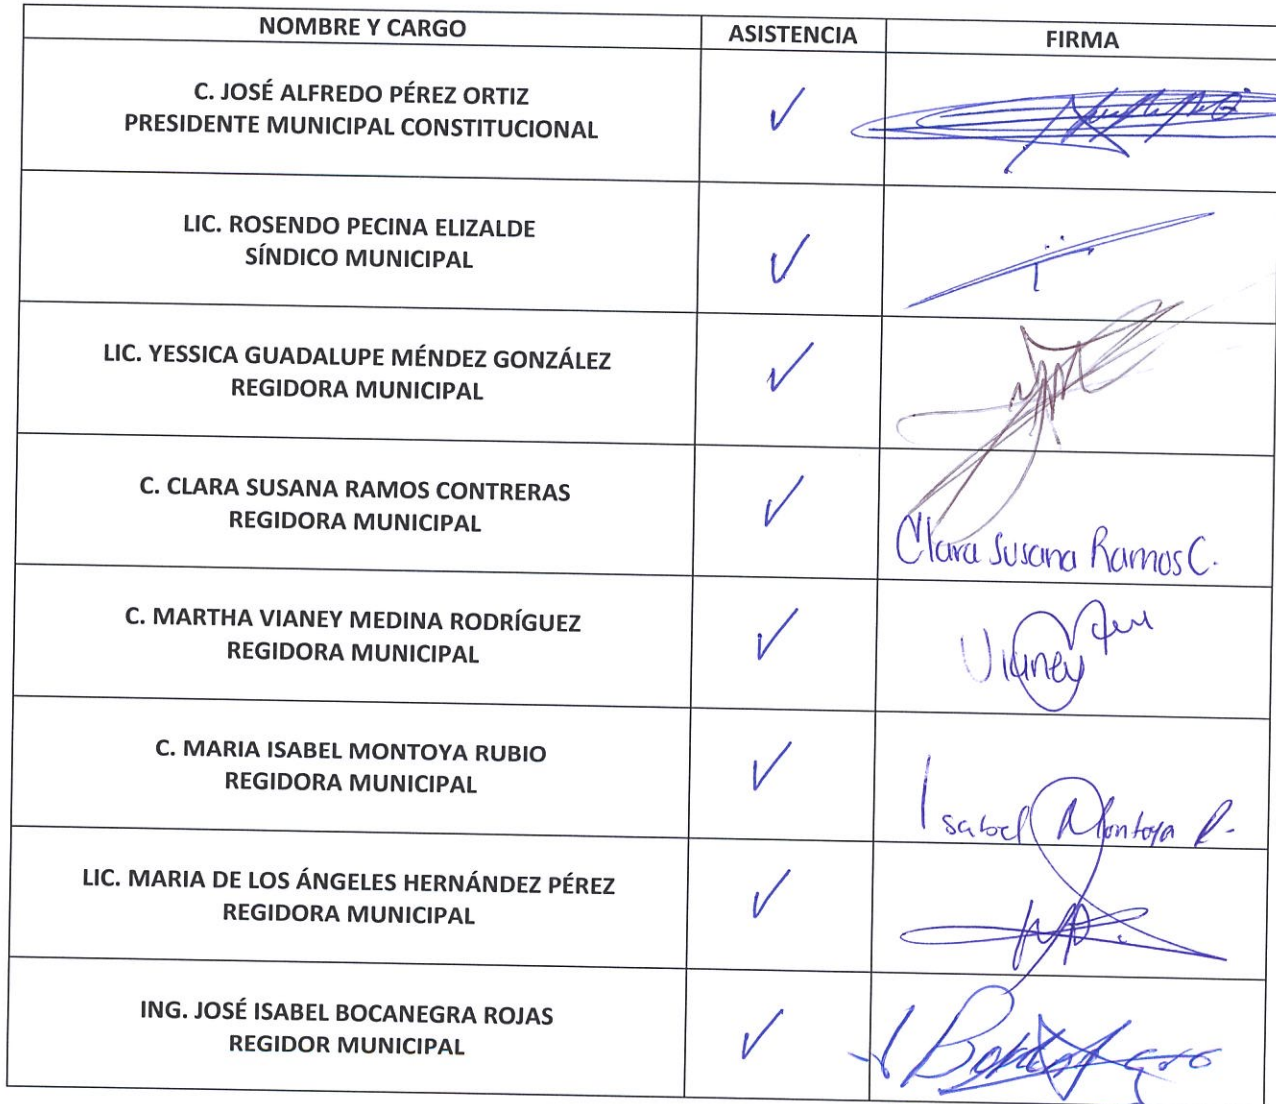 NOMBRE Y CARGO ASISTENCIA FIRMA
C. JOSÉ ALFREDO PÉREZ ORTIZ
PRESIDENTE MUNICIPAL CONSTITUCIONAL
LIC. ROSENDO PECINA ELIZALDE
SÍNDICO MUNICIPAL
LIC. YESSICA GUADALUPE MÉNDEZ GONZÁLEZ
REGIDORA MUNICIPAL
C. CLARA SUSANA RAMOS CONTRERAS
REGIDORA MUNICIPAL
Clara Susana Ramos C.
C. MARTHA VIANEY MEDINA RODRÍGUEZ
REGIDORA MUNICIPAL
Vianey
C. MARIA ISABEL MONTOYA RUBIO
REGIDORA MUNICIPAL
Isabel Montoya R.
LIC. MARIA DE LOS ÁNGELES HERNÁNDEZ PÉREZ
REGIDORA MUNICIPAL
ING. JOSÉ ISABEL BOCANEGRA ROJAS
REGIDOR MUNICIPAL